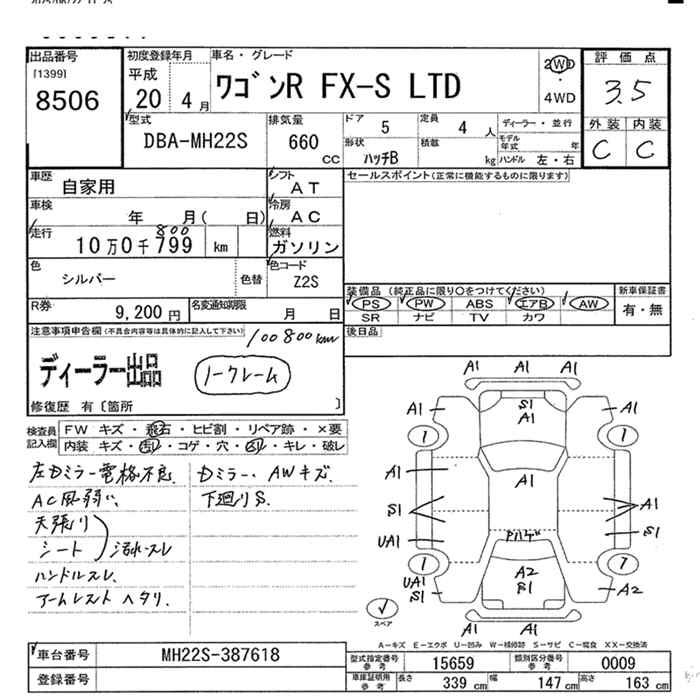 出品番号
[1399]
8506
初度登録年月
平成
20 4月
車名・グレード
ワゴンR FX-S LTD
2WD
・
4WD
評価点
3.5
外装 内装
C C
型式
DBA-MH22S
排気量
660
cc
ドア
5
定員
4 人
形状
ハッチB
積載
kg
ディーラー・並行
モデル年式 年
ハンドル 左・右
車歴
自家用
シフト
AT
車検
年 月( 日)
冷房
AC
走行
800
10万0千799 km
燃料
ガソリン
色
シルバー
色替
色コード
Z2S
R券
9,200 円
名変通知期限
月 日
セールスポイント(正常に機能するものに限ります)
装備品 (純正品に限り○をつけてください)
PS PW ABS エアB AW
SR ナビ TV カワ
新車保証書
有・無
後日品
注意事項申告欄(不具合内容等は具体的に記入して下さい)
100800km
ディーラー出品
ノークレーム
修復歴 有〔箇所 〕
検査員
記入欄
FW キズ・飛石・ヒビ割・リペア跡・×要
内装 キズ・汚れ・コゲ・穴・スレ・キレ・破レ
左Dミラー電格不良
AC風弱い、
天張り
シート
汚れ・スレ
ハンドルスレ、
アームレスト ヘタリ.
Dミラー、AWキズ
下廻りS.
A1 A1 A1
A1 S1 A1
A1
1 1
A1 A1
S1 A1
UA1 S1
1 7
A2
UA1 S1
S1 A2
A1 A1
A1
スペア
A-キズ E-エクボ U-凹み W-補修跡 S-サビ C-腐食 XX-交換済
車台番号
MH22S-387618
登録番号
型式指定番号
参考
15659
類別区分番号
参考
0009
車庫証明用
参考
長さ
339 cm
幅
147 cm
高さ
163 cm